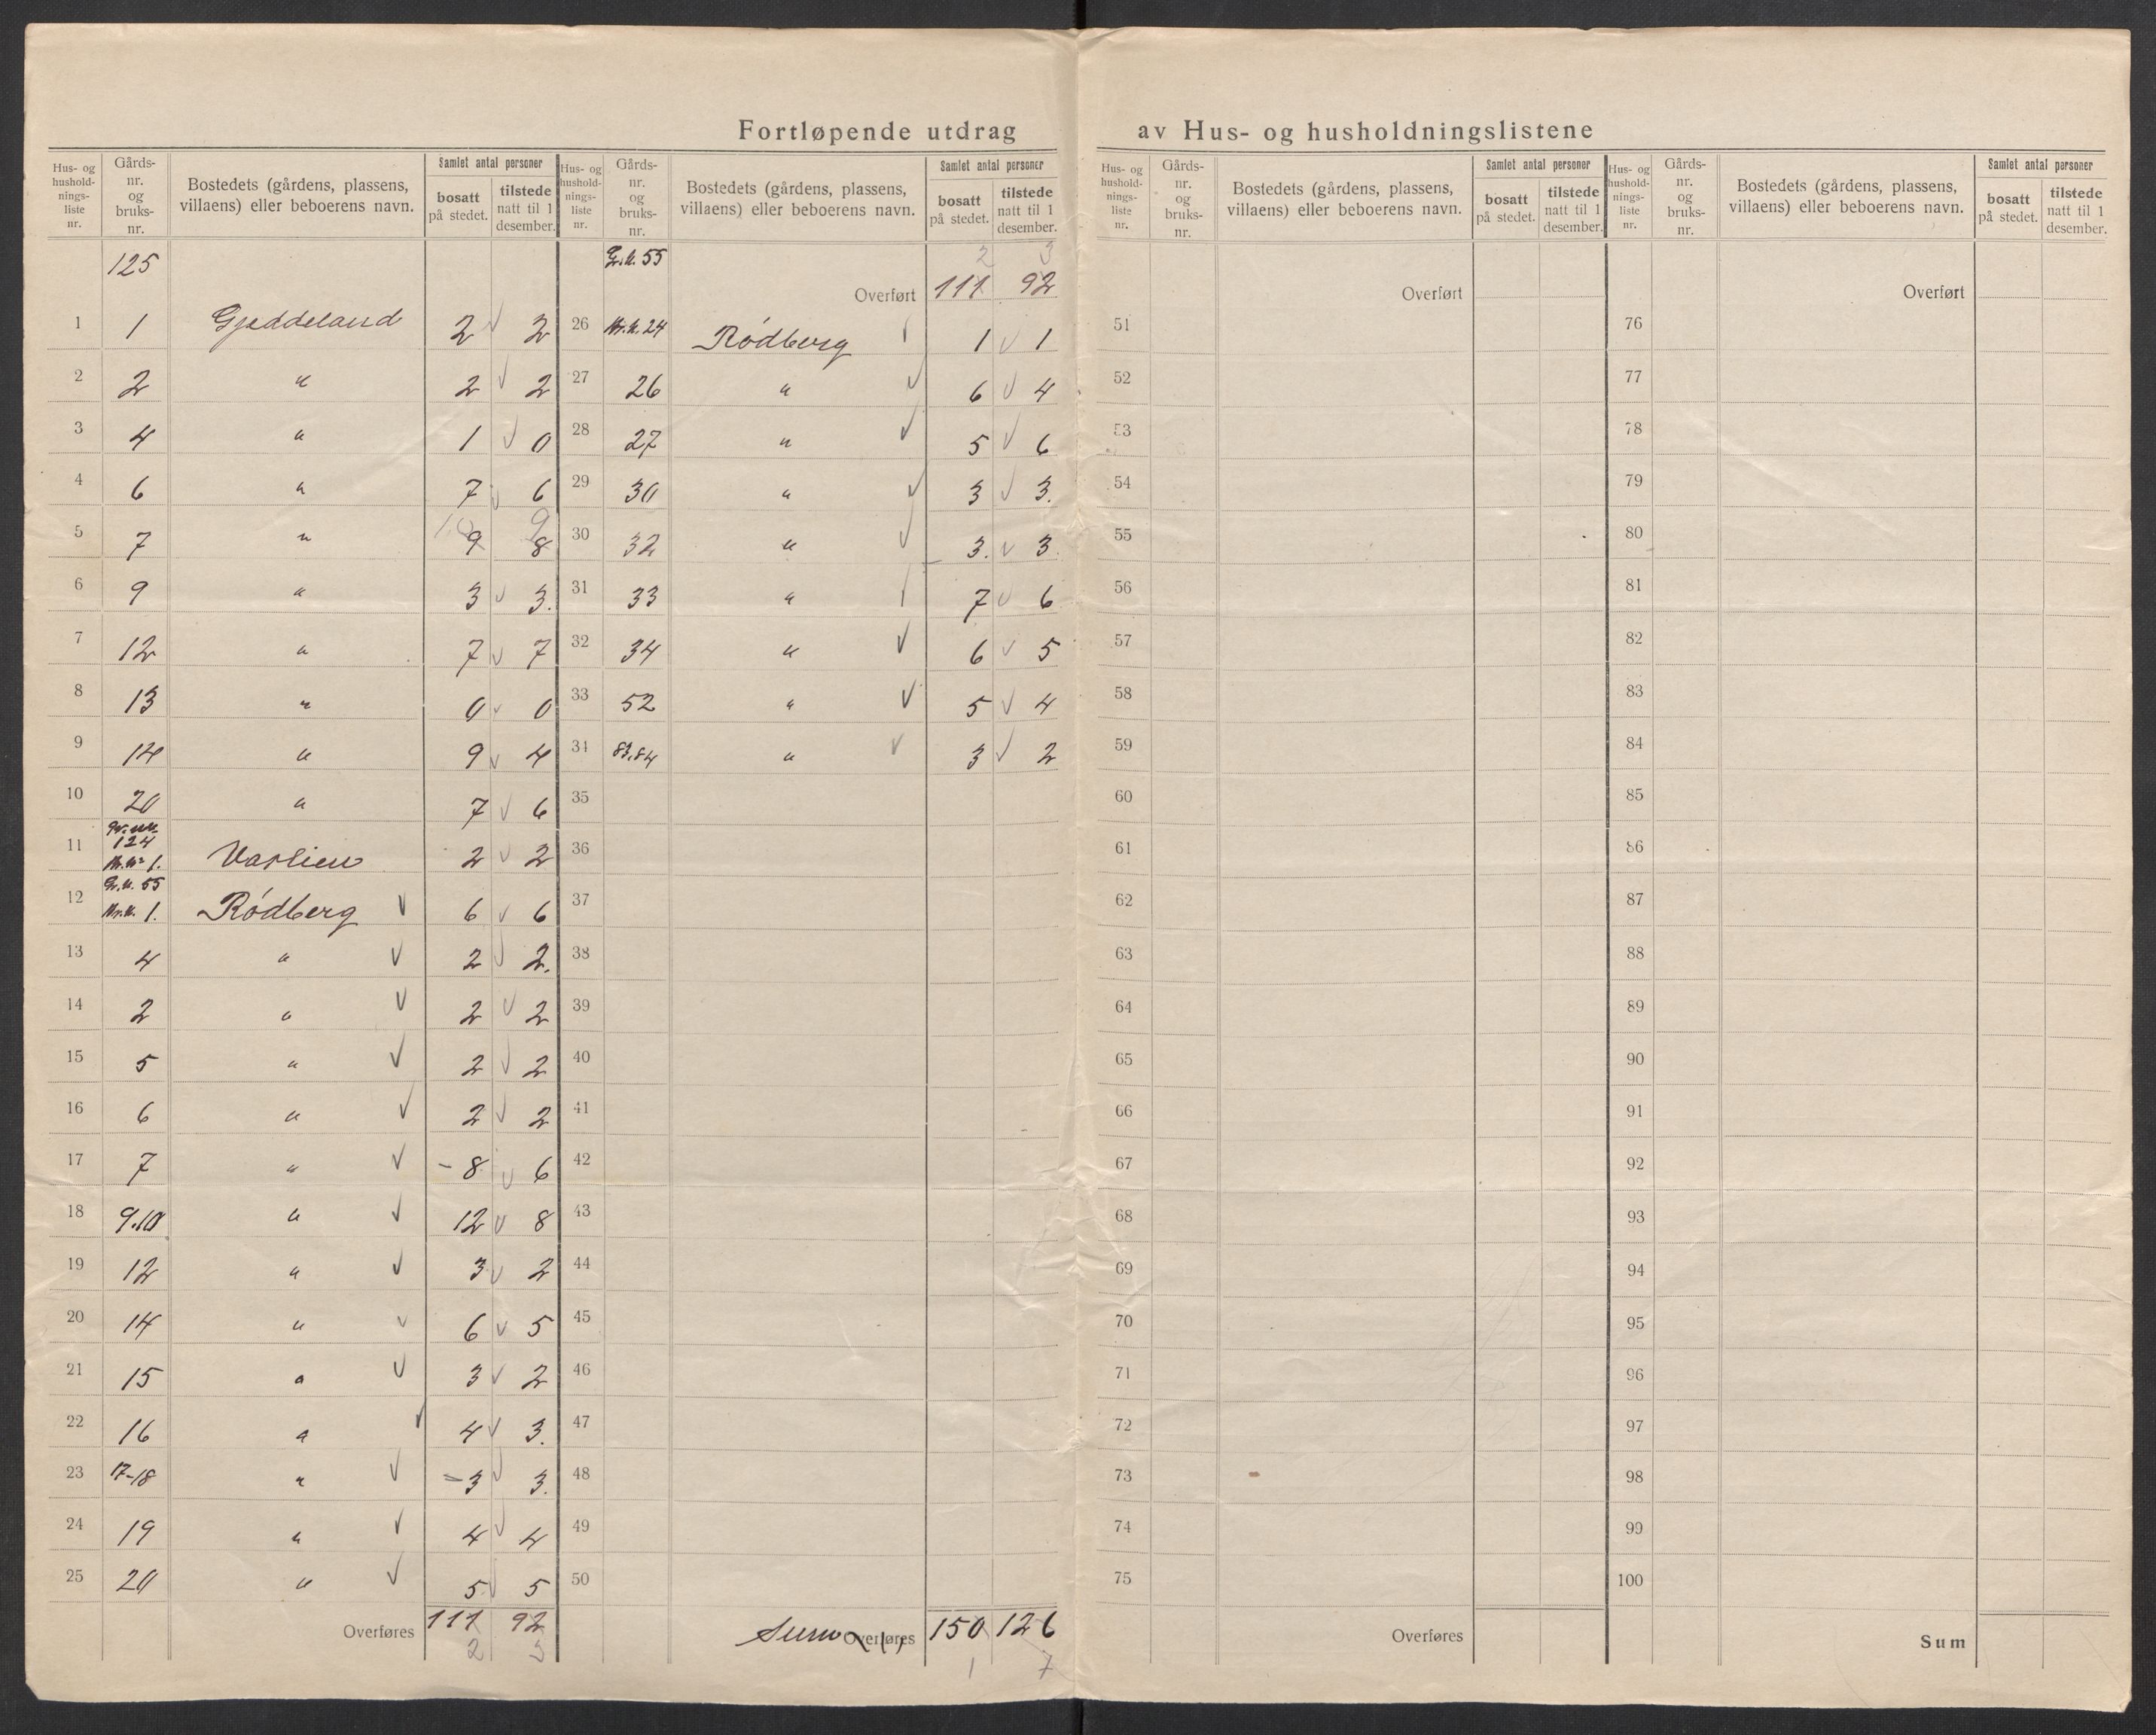 Fortløpende utdrag av Hus- og husholdningslistene
Hus- og hushold- nings- liste nr. Gårds- nr. og bruks- nr. Bostedets (gårdens, plassens, villaens) eller beboerens navn. Samlet antal personer bosatt på stedet. tilstede natt til 1 desember.
125
1 1 Gjeddeland 2 √ 2
2 2 " 2 √ 2
3 4 " 1 √ 0
4 6 " 7 √ 6
10 9
5 7 " 9 8
6 9 " 3 √ 3.
7 12 " 7 √ 7
8 13 " 0 √ 0
9 14 " 9 √ 4
10 20 " 7 √ 6
124
11 1. 2 √ 2
G.n. 55
12 Br.n. 1. Rødberg √ 6 √ 6
13 4 " √ 2 √ 2.
14 2 " √ 2 √ 2
15 5 " √ 2 √ 2
16 6 " √ 2 √ 2
17 7 " √ - 8 √ 6
18 9.10 " √ 12 √ 8
19 12 " √ 3 √ 2
20 14 " √ 6 √ 5
21 15 " √ 3 √ 2
22 16 " √ 4 √ 3.
23 17-18 " √ - 3 √ 3.
24 19 " √ 4 √ 4
25 20 " √ 5 √ 5
Overføres 111 92
2 3
Hus- og hushold- nings- liste nr. Gårds- nr. og bruks- nr. Bostedets (gårdens, plassens, villaens) eller beboerens navn. Samlet antal personer bosatt på stedet. tilstede natt til 1 desember.
G.n. 55 2 3
Overført 111 92
26 Br.n. 24 Rødberg √ 1 √ 1
27 26 " √ 6 √ 4
28 27 " √ 5 √ 6
29 30 " √ 3 √ 3.
30 32 " √ 3. √ 3.
31 33 " √ 7 √ 6
32 34 " √ 6 √ 5
33 52 " √ 5 √ 4
34 83.84 " √ 3 √ 2
35
36
37
38
39
40
41
42
43
44
45
46
47
48
49
50
Sum Overføres 150 126
1 7
Hus- og hushold- nings- liste nr. Gårds- nr. og bruks- nr. Bostedets (gårdens, plassens, villaens) eller beboerens navn. Samlet antal personer bosatt på stedet. tilstede natt til 1 desember.
Overført
51
52
53
54
55
56
57
58
59
60
61
62
63
64
65
66
67
68
69
70
71
72
73
74
75
Overføres
Hus- og hushold- nings- liste nr. Gårds- nr. og bruks- nr. Bostedets (gårdens, plassens, villaens) eller beboerens navn. Samlet antal personer bosatt på stedet. tilstede natt til 1 desember.
Overført
76
77
78
79
80
81
82
83
84
85
86
87
88
89
90
91
92
93
94
95
96
97
98
99
100
Sum